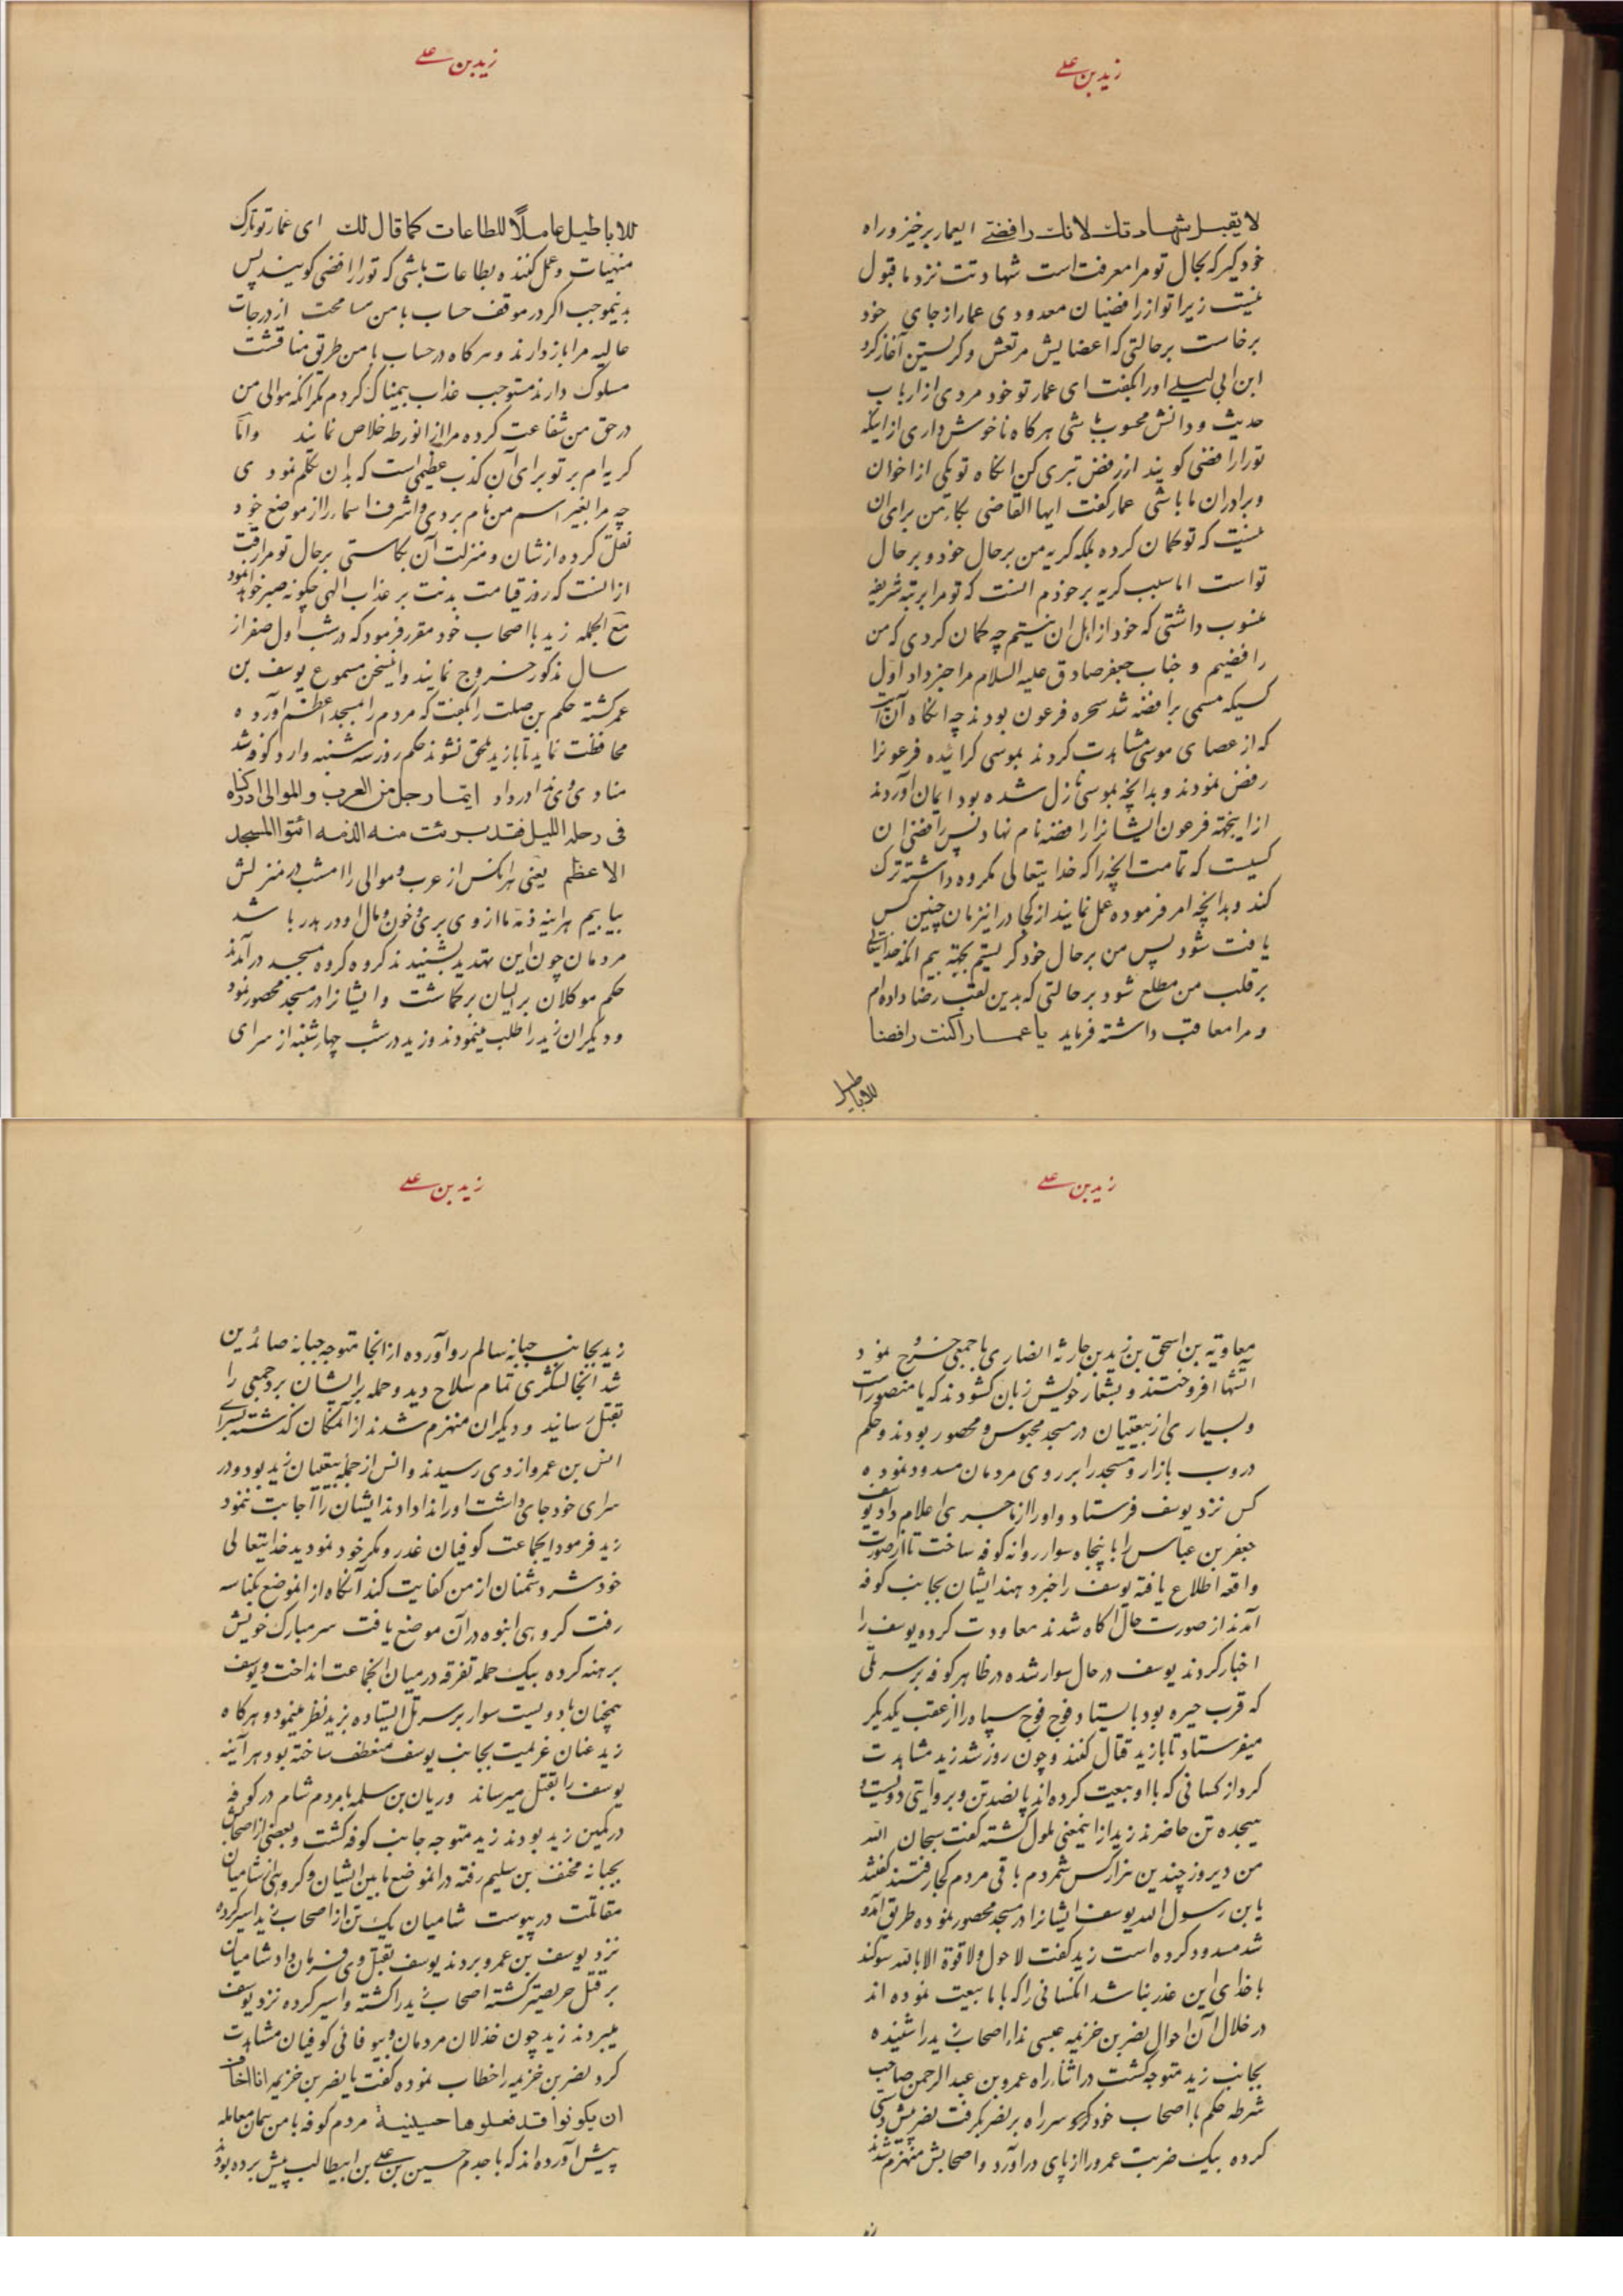 زید بن علے
لا یقبل شهادتك لانك رافضے ایعمار برخیز و راه
خود گیر که بحال تو مرا معرفت است شهادتت نزد ما قبول
نیست زیرا تو از رافضیان معدودی عمار از جای خود
برخاست بر حالتی که اعضایش مرتعش و گریستن آغاز کرد
ابن ابی لیلے او را بگفت ای عمار تو خود مردی از ارباب
حدیث و دانش محسوب باشی هرگاه ناخوش داری از اینکه
تو را رافضی گویند از رفض تبری کن آنگاه تو یکی از اخوان
و برادران ما باشی عمار گفت ایها القاضی بکاء من برای آن
نیست که تو گمان کرده بلکه گریه من بر حال خود و بر حال
تو است اما سبب گریه بر خودم آنست که تو مرا برتبه شریفه
منسوب داشتی که خود از اهل آن نیستم چه گمان کردی که من
رافضیم و جناب جعفر صادق علیه السلام مرا خبر داد اول
کسیکه مسمی برافضه شد سحره فرعون بودند چه آنگاه آن آیت
که از عصای موسی مشاهدت کردند بموسی گرائیده فرعونرا
رفض نمودند و بدانچه بموسی نازل شده بود ایمان آوردند
از اینجهته فرعون ایشانرا رافضه نام نهاد پس رافضی آن
کسیست که تمامت آنچه را که خدایتعالی مکروه داشته ترک
کند و بدانچه امر فرموده عمل نماید از کجا در اینزمان چنین کس
یافت شود پس من بر حال خود گریستم بجهته بیم آنکه خدایتعالی
بر قلب من مطلع شود بر حالتی که بدین لقب رضا داده‌ام
و مرا معاقب داشته فرماید یا عمار اکنت رافضا
للاباطیل
زید بن علے
للاباطیل عاملاً للطاعات کما قال لك ای عمار تو تارک
منهیات و عمل کننده بطاعات باشی که تو را رافضی گویند پس
بدینموجب اگر در موقف حساب با من مسامحت از درجات
عالیه مرا بازدارند و هرگاه در حساب با من طریق مناقشت
مسلوک دارند مستوجب عذاب بیمناک گردم مگر آنکه موالی من
در حق من شفاعت کرده مرا از آنورطه خلاص نمایند و اما
گریه‌ام بر تو برای آن کذب عظیمی است که بدان تکلم نمودی
چه مرا بغیر اسم من نام بردی و اشرف اسماء را از موضع خود
نقل کرده از شان و منزلت آن بکاستی بر حال تو مرا رقت
از آنست که روز قیامت بدنت بر عذاب الهی چگونه صبر خواهد نمود
مع الجمله زید با اصحاب خود مقرر فرمود که در شب اول صفر از
سال مذکور خروج نمایند و اینسخن مسموع یوسف بن
عمر گشته حکم بن صلت را بگفت که مردم را بمسجد اعظم آورده
محافظت نماید تا با زید ملحق نشوند حکم روز سه شنبه وارد کوفه شد
منادی وی ندا در داد ایما رجل من العرب و الموالی ادرکناه
فی رحله اللیل فقد برئت منه الذمه ائتوا المسجد
الاعظم یعنی هر آنکس از عرب و موالی را امشب در منزلش
بیابیم هراینه ذمه ما از وی بری و خون و مال او در هدر باشد
مردمان چون این تهدید بشنیدند گروه گروه مسجد درآمدند
حکم موکلان بر ایشان برگماشت و ایشانرا در مسجد محصور نمود
و دیگران زید را طلب مینمودند و زید در شب چهارشنبه از سرای
زید بن علے
معاویة بن اسحق بن زید بن حارثه انصاری با جمعی خروج نمود
آتشها افروختند و بشعار خویش زبان گشودند که یا منصور امت
و بسیاری از بیعتیان در مسجد محبوس و محصور بودند و حکم
دروب بازار و مسجد را بر روی مردمان مسدود نموده
کس نزد یوسف فرستاد و او را از ماجری اعلام داد یوسف
جعفر بن عباس را با پنجاه سوار روانه کوفه ساخت تا از صورت
واقعه اطلاع یافته یوسف را خبر دهند ایشان بجانب کوفه
آمدند از صورت حال آگاه شدند معاودت کرده یوسف را
اخبار کردند یوسف در حال سوار شده در ظاهر کوفه بر سر تلی
که قرب حیره بود بایستاد و فوج فوج سپاه را از عقب یکدیگر
میفرستاد تا با زید قتال کنند و چون روز شد زید مشاهدت
کرد از کسانی که با او بیعت کرده‌اند پانصد تن و بروایتی دویست و
هیجده تن حاضرند زید از اینمعنی ملول گشته گفت سبحان الله
من دیروز چندین هزار کس شمردم باقی مردم کجا رفتند گفتند
یابن رسول الله یوسف ایشانرا در مسجد محصور نموده طریق آمد و
شد مسدود کرده است زید گفت لا حول و لا قوة الا بالله سوگند
با خدای این عذر نباشد آنکسانی را که با ما بیعت نموده‌اند
در خلال آن احوال نصر بن خزیمه عبسی نداء اصحاب زید را شنیده
بجانب زید متوجه گشت در اثناء راه عمرو بن عبد الرحمن صاحب
شرطه حکم با اصحاب خود سر راه بر نصر بگرفت نصر پیش دستی
کرده بیک ضربت عمرو را از پای درآورد و اصحابش منهزم شدند
زید بن علے
زید بجانب جبانه سالم رو آورده از آنجا متوجه جبانه صائدین
شد آنجا لشکری تمام سلاح دید و حمله بر ایشان برد جمعی را
بقتل رسانید و دیگران منهزم شدند از آنمکان گذشته بسرای
انس بن عمرو ازدی رسیدند و انس از جمله بیعتیان زید بود و در
سرای خود جای داشت او را ندا دادند ایشان را اجابت ننمود
زید فرمود ایجماعت کوفیان غدر و مکر خود نمودید خدایتعالی
خود شر دشمنان از من کفایت کند آنگاه از آنموضع بکناسه
رفت گروهی انبوه در آن موضع یافت سر مبارک خویش
برهنه کرده بیک حمله تفرقه در میان آنجماعت انداخت و یوسف
همچنان با دویست سوار بر سر تل ایستاده بزید نظر مینمود و هرگاه
زید عنان عزیمت بجانب یوسف منعطف ساخته بود هرآینه
یوسف را بقتل میرساند و ریان بن سلمه با مردم شام در کوفه
در کمین زید بودند زید متوجه جانب کوفه گشت و بعضی از اصحابش
بجبانه مخنف بن سلیم رفته در آنموضع ما بین ایشان و گروهی از شامیان
مقاتلت در پیوست شامیان یک تن از اصحاب زید اسیر کرده
نزد یوسف بن عمرو بردند یوسف بقتل وی فرمان داد شامیان
بر قتل حریصتر گشته اصحاب زید را کشته و اسیر کرده نزد یوسف
میبردند زید چون خذلان مردمان و بیوفائی کوفیان مشاهدت
کرد نصر بن خزیمه را خطاب نموده گفت یا نصر بن خزیمه انا اخاف
ان یکونوا قد فعلوها حسینیة مردم کوفه با من همان معامله
پیش آورده‌اند که با جدم حسین بن علے بن ابیطالب پیش برده بودند